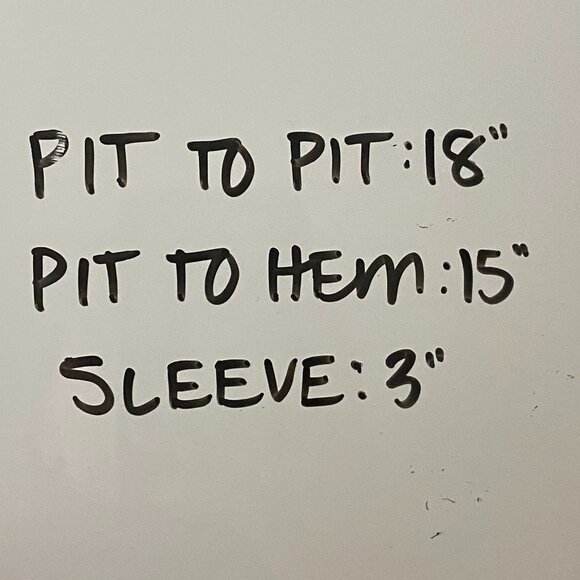 PIT TO PIT: 18"
PIT TO HEM: 15"
SLEEVE: 3"